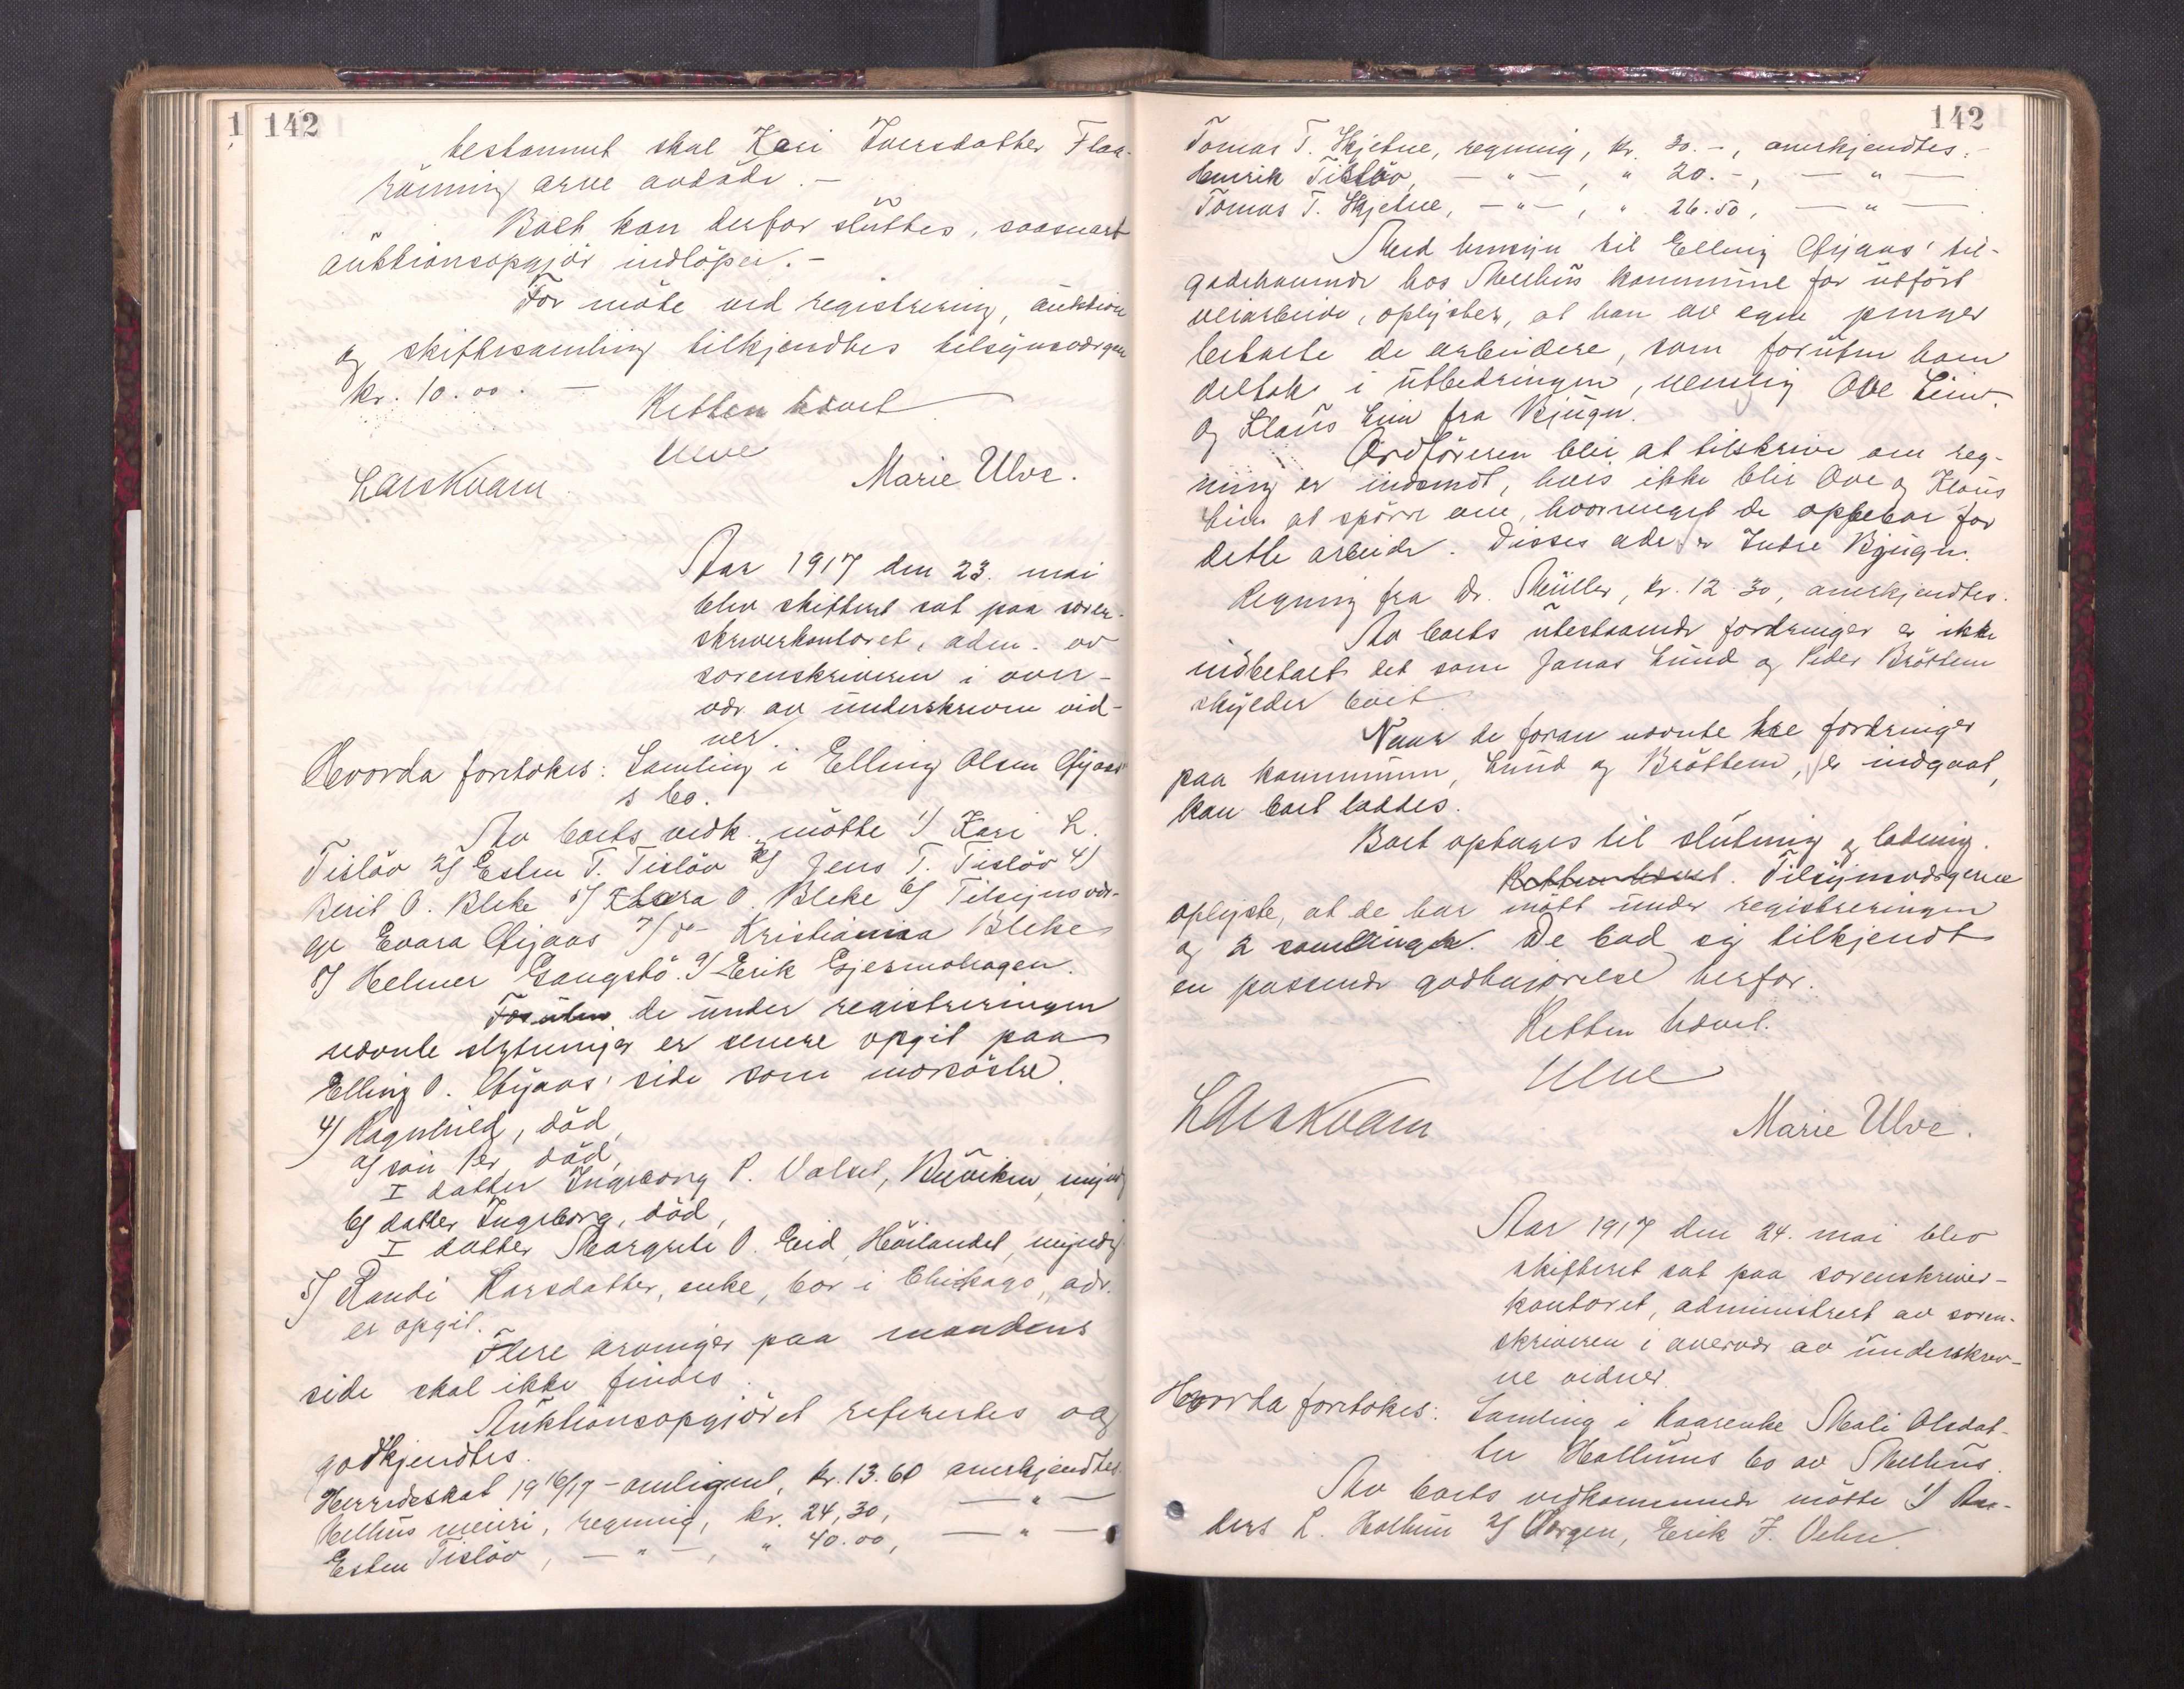 142
bestemmt skal Kari Iversdatter Flaa-
rönning arve avdöde. -
Boet kan derfor sluttes, saasnart
auktionsopgjör indlöper. -
For möte ved registrering, auktion
og skiftesamling tilkjendtes tilsynsværgen
kr. 10.00. -
Retten hævet
Ulve
Lars Kvam
Marie Ulve.
Aar 1917 den 23. mai
blev skifteret sat paa soren-
skriverkontoret, adm. av
sorenskriveren i over-
vær av underskrevne vid-
ner.
Hvorda foretokes: Samling i Elling Olsen Gijaas'
s bo.
Av boets vedk. mötte 1) Kari L.
Tislöv 2) Esten T. Tislöv 3) Jens T. Tislöv 4)
Berit O. Bleke 5) Klara O. Bleke 6) Tilsynsvær-
ge Evara Gijaas 7) do- Kristianna Bleke
8) Helmer Gaugstö. 9) Erik Gjermohagen.
Foruten de under registreringen
nævnte slegtninger er senere opgit paa
Elling O. Gijaas' side som morsöstre.
4) Ragnhild, död,
a) sön Per, död,
I datter Ingeborg P. Valset, Buviken, myndig
b) datter Ingeborg, död,
I datter Margrete O. Eid, Höilandet, myndig.
5) Randi Larsdatter, enke, bor i Chikago, adr.
er opgit.
Flere arvinger paa mandens
side skal ikke findes.
Auktionsopgjöret refertes og
godkjendtes.
Herredsskat 1916/17 - omlignet, kr. 13.60 anerkjendtes.
Melhus meieri, regning, kr. 24,30, — " —
Esten Tislöv, — " —, " 40.00, — " —
142
Tomas T. Skjetne, regning, kr. 30.-, anerkjendtes.-
Henrik Tislöv, — " —, " 20.-, — " —
Tomas T. Skjetne, — " —, " 26.50, — " —
Med hensyn til Elling Gijaas' til-
godehavende hos Melhus kommune for utfört
veiarbeide, oplystes, at han av egne penger
betalte de arbeidere, som foruten ham
deltok i utbedringen, nemlig Ove Lein
og Klaus Lein fra Bjugn.
Ordföreren blir at tilskrive om reg-
ning er indsendt, hvis ikke blir Ove og Klaus
Lein at spörre om, hvormeget de oppebar for
dette arbeide. Disses adr. er Indre Bjugn.
Regning fra Dr. Müller, kr. 12.30, anerkjendtes.
Av boets utestaaende fordringer er ikke
indbetalt det som Jonas Lund og Peder Bröttem
skylder boet.
Naar de foran nævnte tre fordringer
paa kommunen, Lund og Bröttem, er indgaat,
kan boet loddes.
Boet optages til slutning og lodning.
Retten hævet. Tilsynsværgerne
oplyste, at de har mött under registreringen
og 2 samlinger. De bad sig tilkjendt
en passende godtgjörelse herfor.
Retten hævet.
Ulve
Lars Kvam
Marie Ulve.
Aar 1917 den 24. mai blev
skifteret sat paa sorenskriver-
kontoret, administrert av soren-
skriveren i overvær av underskrev-
ne vidner.
Hvorda foretokes: Samling i kaarenke Mali Olsdat-
ter Hollums bo av Melhus.
Av boets vedkommende mötte 1) An-
ders L. Hollum 2) Værgen, Erik J. Velve.